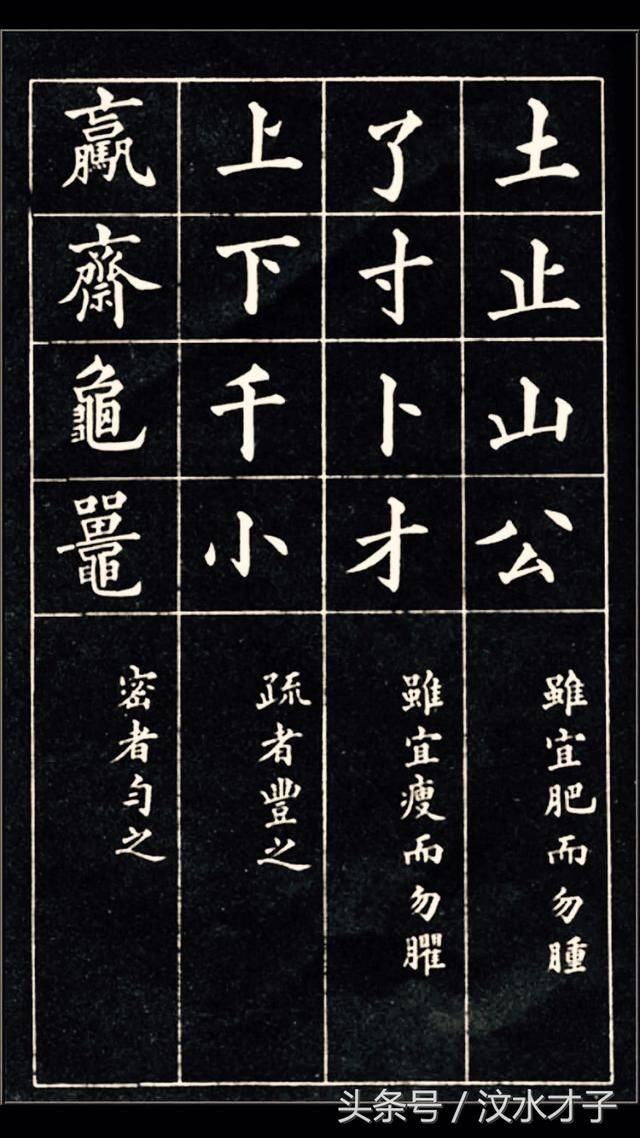 土止山公
雖宜肥而勿腫
了寸卜才
雖宜瘦而勿臞
上下千小
疏者豐之
驘齋龜鼉
密者勻之
头条号 / 汶水才子